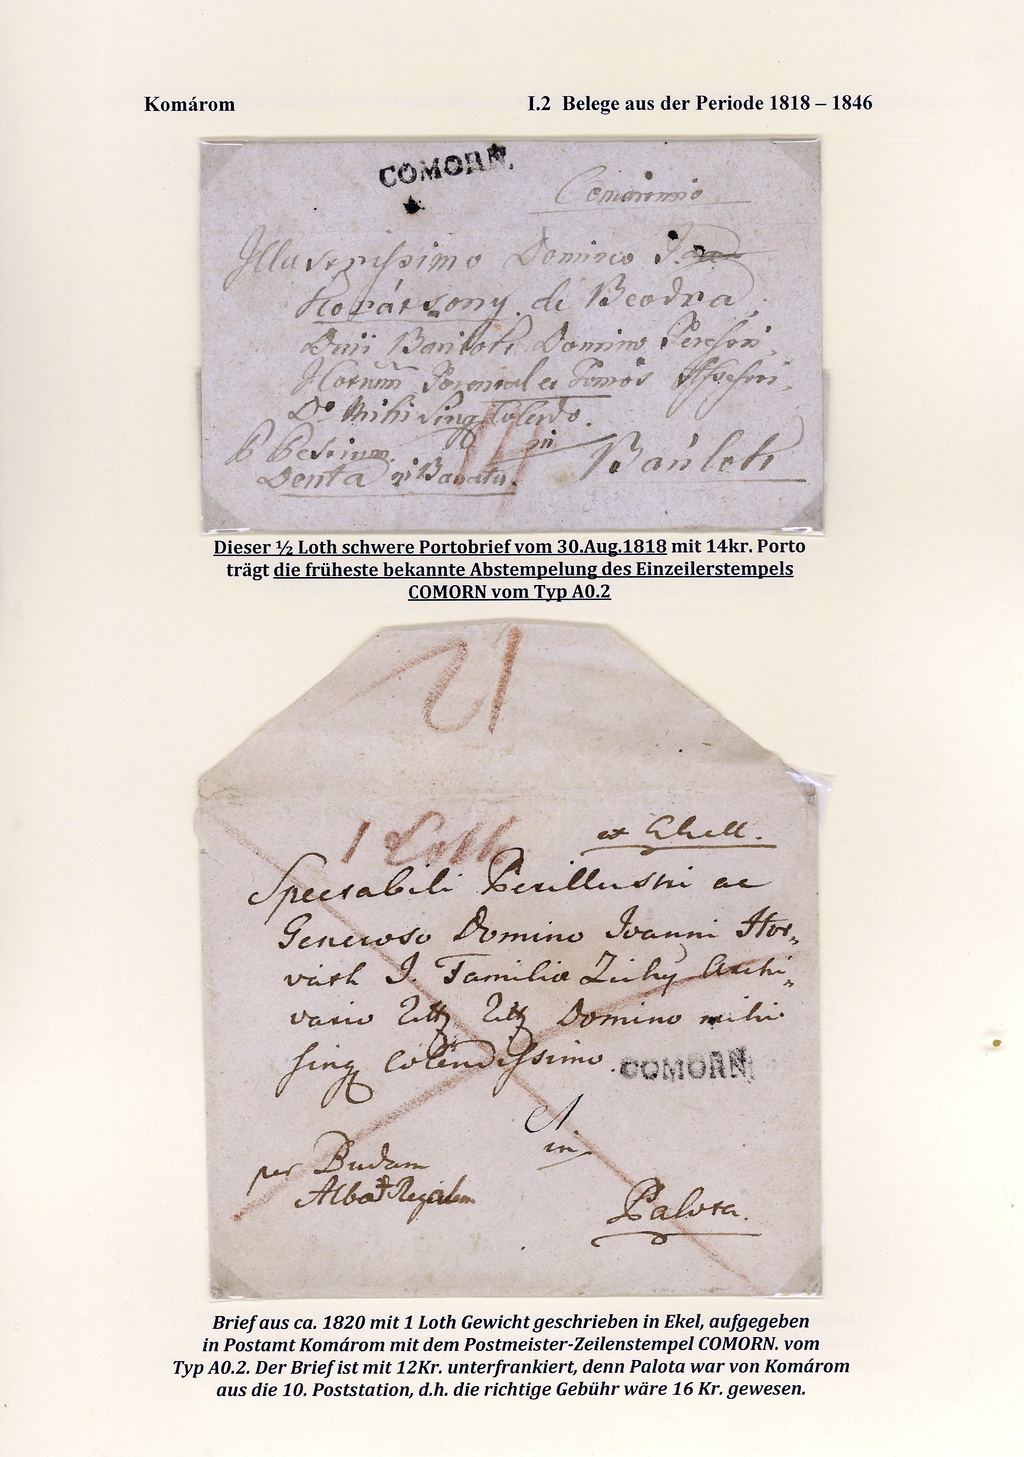 Komárom I.2 Belege aus der Periode 1818 – 1846
COMORN.
Comaromio
Illustrissimo Domino
Karátsony de Beodra
Dnii Banloki Domino
Do Mihi Sing Colendo.
14
in
Denta in Banatu. Banlok
Dieser ½ Loth schwere Portobrief vom 30.Aug.1818 mit 14kr. Porto
trägt die früheste bekannte Abstempelung des Einzeilerstempels
COMORN vom Typ A0.2
12
1 Loth
ex Ekell.
Spectabili Perillustri ac
Generoso Domino Joanni Hor-
vath I. Familiæ Zichy Archi-
vario Domino mihi
sing Colendissimo.
COMORN.
a
in
per Budam
Albam Regalem
Palota.
Brief aus ca. 1820 mit 1 Loth Gewicht geschrieben in Ekel, aufgegeben
in Postamt Komárom mit dem Postmeister-Zeilenstempel COMORN. vom
Typ A0.2. Der Brief ist mit 12Kr. unterfrankiert, denn Palota war von Komárom
aus die 10. Poststation, d.h. die richtige Gebühr wäre 16 Kr. gewesen.